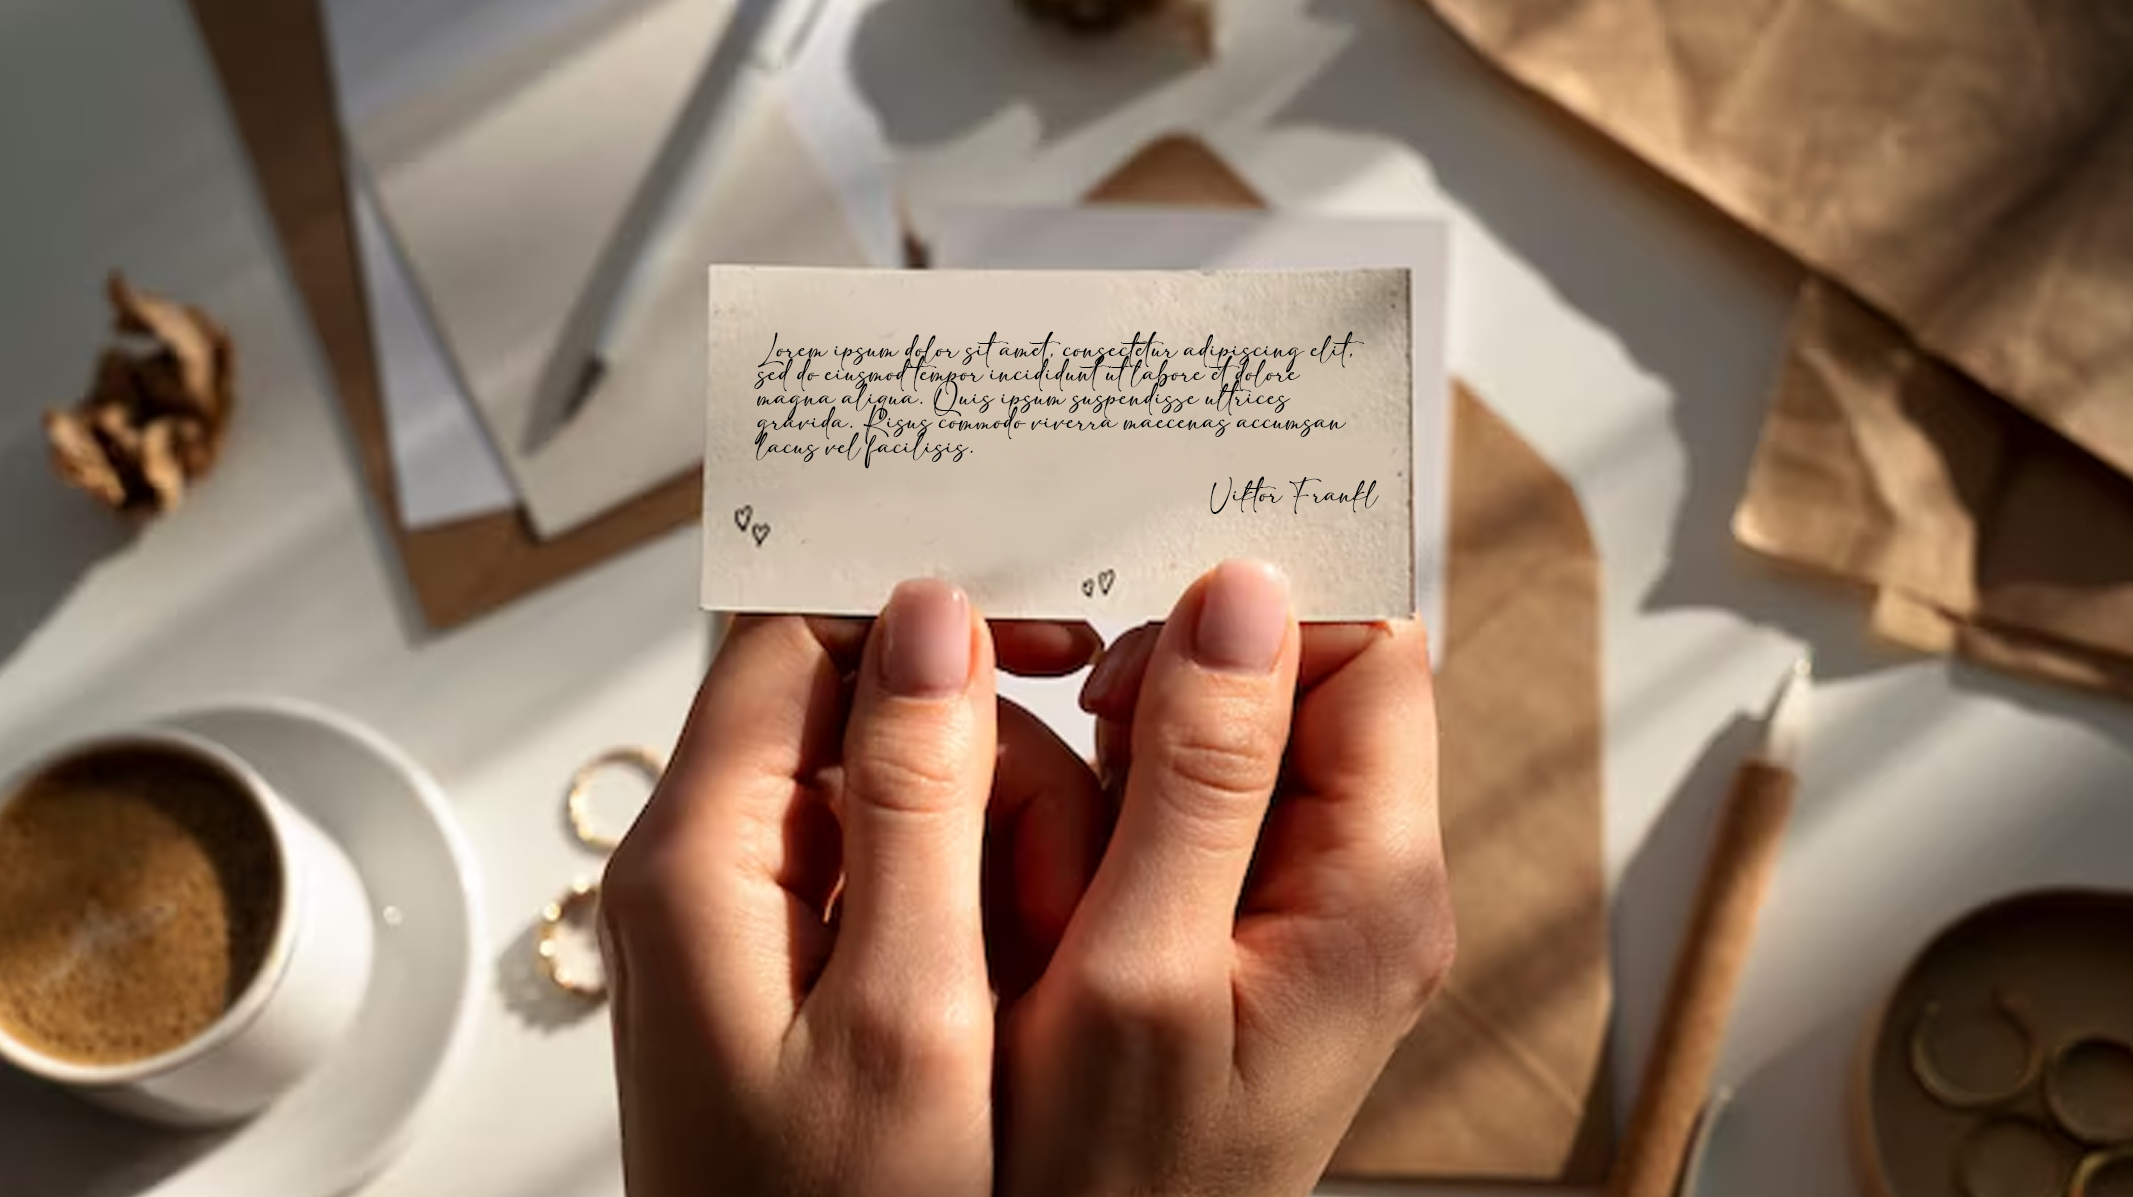 Lorem ipsum dolor sit amet, consectetur adipiscing elit,
sed do eiusmod tempor incididunt ut labore et dolore
magna aliqua. Quis ipsum suspendisse ultrices
gravida. Risus commodo viverra maecenas accumsan
lacus vel facilisis.
Viktor Frankl